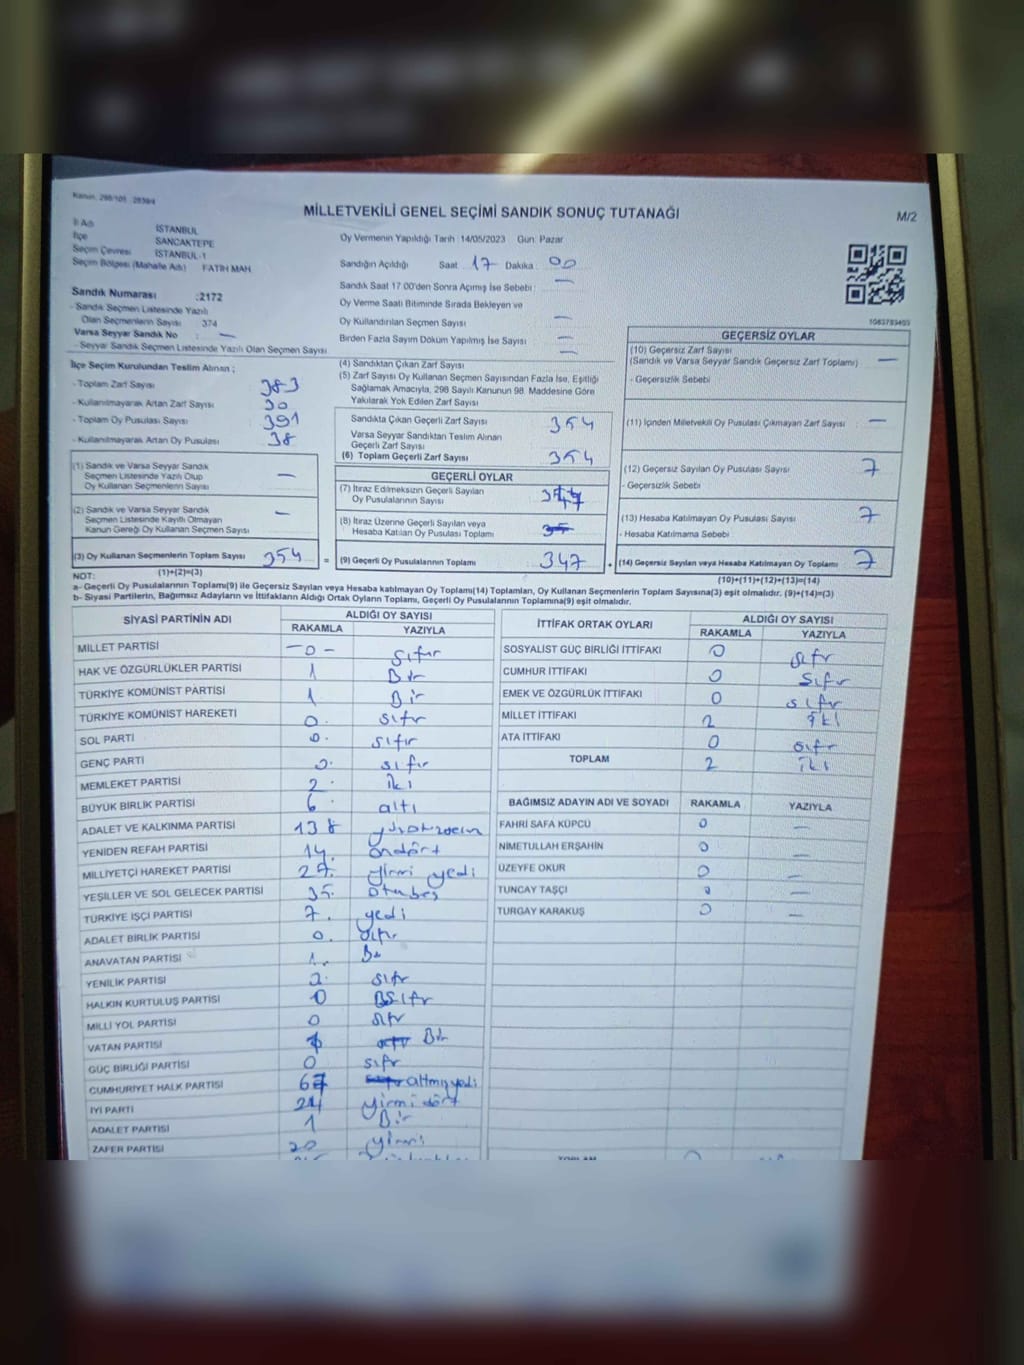 MİLLETVEKİLİ GENEL SEÇİMİ SANDIK SONUÇ TUTANAĞI
M/2
İl Adı İSTANBUL
İlçe SANCAKTEPE
Seçim Çevresi İSTANBUL-1
Seçim Bölgesi (Mahalle Adı) FATİH MAH.
Sandık Numarası :2172
- Sandık Seçmen Listesinde Yazılı
Olan Seçmenlerin Sayısı 374
Varsa Seyyar Sandık No : —
- Seyyar Sandık Seçmen Listesinde Yazılı Olan Seçmen Sayısı
Oy Vermenin Yapıldığı Tarih :14/05/2023 Gün: Pazar
Sandığın Açıldığı Saat 17 Dakika : 00
Sandık Saat 17.00'den Sonra Açılmış İse Sebebi : —
Oy Verme Saati Bitiminde Sırada Bekleyen ve
Oy Kullandırılan Seçmen Sayısı —
Birden Fazla Sayım Döküm Yapılmış İse Sayısı —
1083783403
İlçe Seçim Kurulundan Teslim Alınan ;
- Toplam Zarf Sayısı 383
- Kullanılmayarak Artan Zarf Sayısı 30
- Toplam Oy Pusulası Sayısı 391
- Kullanılmayarak Artan Oy Pusulası 38
(1) Sandık ve Varsa Seyyar Sandık
Seçmen Listesinde Yazılı Olup
Oy Kullanan Seçmenlerin Sayısı —
(2) Sandık ve Varsa Seyyar Sandık
Seçmen Listesinde Kayıtlı Olmayan
Kanun Gereği Oy Kullanan Seçmen Sayısı —
(3) Oy Kullanan Seçmenlerin Toplam Sayısı 354 =
(1)+(2)=(3)
(4) Sandıktan Çıkan Zarf Sayısı —
(5) Zarf Sayısı Oy Kullanan Seçmen Sayısından Fazla İse, Eşitliği
Sağlamak Amacıyla, 298 Sayılı Kanunun 98. Maddesine Göre
Yakılarak Yok Edilen Zarf Sayısı
Sandıkta Çıkan Geçerli Zarf Sayısı 354
Varsa Seyyar Sandıktan Teslim Alınan
Geçerli Zarf Sayısı
(6) Toplam Geçerli Zarf Sayısı 354
GEÇERLİ OYLAR
(7) İtiraz Edilmeksizin Geçerli Sayılan
Oy Pusulalarının Sayısı
(8) İtiraz Üzerine Geçerli Sayılan veya
Hesaba Katılan Oy Pusulası Toplamı
(9) Geçerli Oy Pusulalarının Toplamı 347 +
GEÇERSİZ OYLAR
(10) Geçersiz Zarf Sayısı
(Sandık ve Varsa Seyyar Sandık Geçersiz Zarf Toplamı) —
- Geçersizlik Sebebi
(11) İçinden Milletvekili Oy Pusulası Çıkmayan Zarf Sayısı —
(12) Geçersiz Sayılan Oy Pusulası Sayısı 7
- Geçersizlik Sebebi
(13) Hesaba Katılmayan Oy Pusulası Sayısı 7
- Hesaba Katılmama Sebebi
(14) Geçersiz Sayılan veya Hesaba Katılmayan Oy Toplamı 7
(10)+(11)+(12)+(13)=(14)
NOT:
a- Geçerli Oy Pusulalarının Toplamı(9) ile Geçersiz Sayılan veya Hesaba katılmayan Oy Toplamı(14) Toplamları, Oy Kullanan Seçmenlerin Toplam Sayısına(3) eşit olmalıdır. (9)+(14)=(3)
b- Siyasi Partilerin, Bağımsız Adayların ve İttifakların Aldığı Ortak Oyların Toplamı, Geçerli Oy Pusulalarının Toplamına(9) eşit olmalıdır.
SİYASİ PARTİNİN ADI ALDIĞI OY SAYISI
RAKAMLA YAZIYLA
MİLLET PARTİSİ -0- sıfır
HAK VE ÖZGÜRLÜKLER PARTİSİ 1 Bir
TÜRKİYE KOMÜNİST PARTİSİ 1 Bir
TÜRKİYE KOMÜNİST HAREKETİ 0. sıfır
SOL PARTİ 0. sıfır
GENÇ PARTİ 0. sıfır
MEMLEKET PARTİSİ 2. iki
BÜYÜK BİRLİK PARTİSİ 6. altı
ADALET VE KALKINMA PARTİSİ 138
YENİDEN REFAH PARTİSİ 14. ondört
MİLLİYETÇİ HAREKET PARTİSİ 27. yirmi yedi
YEŞİLLER VE SOL GELECEK PARTİSİ 35. otuzbeş
TÜRKİYE İŞÇİ PARTİSİ 7. yedi
ADALET BİRLİK PARTİSİ 0. sıfır
ANAVATAN PARTİSİ 1. Bir
YENİLİK PARTİSİ sıfır
HALKIN KURTULUŞ PARTİSİ 0 sıfır
MİLLİ YOL PARTİSİ 0 sıfır
VATAN PARTİSİ Bir
GÜÇ BİRLİĞİ PARTİSİ 0 sıfır
CUMHURİYET HALK PARTİSİ 67 altmışyedi
İYİ PARTİ 24 yirmi dört
ADALET PARTİSİ 1 Bir
ZAFER PARTİSİ 20 yirmi
İTTİFAK ORTAK OYLARI ALDIĞI OY SAYISI
RAKAMLA YAZIYLA
SOSYALİST GÜÇ BİRLİĞİ İTTİFAKI 0 sıfır
CUMHUR İTTİFAKI 0 sıfır
EMEK VE ÖZGÜRLÜK İTTİFAKI 0 sıfır
MİLLET İTTİFAKI 2 iki
ATA İTTİFAKI 0 sıfır
TOPLAM 2 iki
BAĞIMSIZ ADAYIN ADI VE SOYADI RAKAMLA YAZIYLA
FAHRİ SAFA KÜPCÜ 0 —
NİMETULLAH ERŞAHİN 0 —
ÜZEYFE OKUR 0 —
TUNCAY TAŞÇI 0 —
TURGAY KARAKUŞ 0 —
TOPLAM